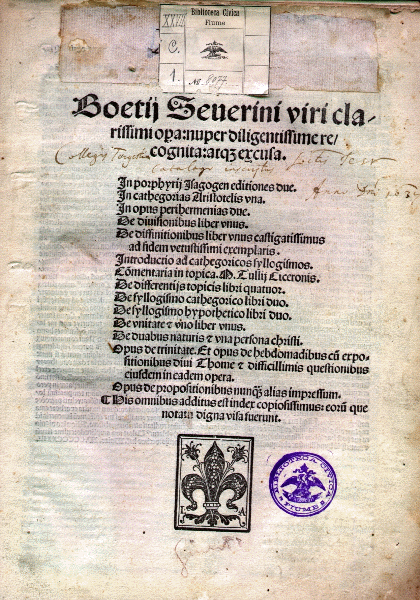 XXVII
Biblioteca Civica
Fiume
C.
1.
Boetij Seuerini viri cla-
rissimi opa: nuper diligentissime re/
cognita: atq3 excusa.
In porphyrij Isagogen editiones due.
In cathegorias Aristotelis vna.
In opus perihermenias due.
De diuisionibus liber vnus.
De diffinitionibus liber vnus castigatissimus
ad fidem vetustissimi exemplaris.
Introductio ad cathegoricos syllogismos.
Cōmentaria in topica. M. Tullij Ciceronis.
De differentijs topicis libri quatuor.
De syllogismo cathegorico libri duo.
De syllogismo hypothetico libri duo.
De vnitate ⁊ vno liber vnus.
De duabus naturis ⁊ vna persona christi.
Opus de trinitate. Et opus de hebdomadibus cū expo-
sitionibus diui Thome ⁊ difficillimis questionibus
eiusdem in eadem opera.
Opus de propositionibus nunq̄3 alias impressum.
His omnibus additus est index copiosissimus: eorū que
notatu digna visa fuerunt.
L A
BIBLIOTECA CIVICA
FIUME